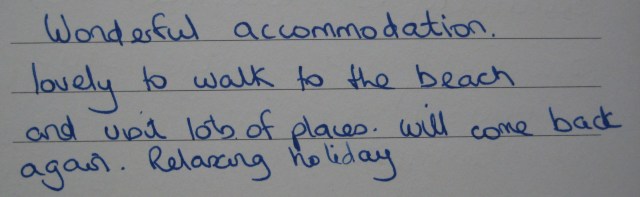 Wonderful accommodation.
lovely to walk to the beach
and visit lots of places. will come back
again. Relaxing holiday